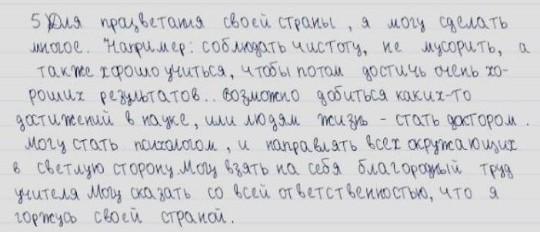 5) Для працветания своей страны, я могу сделать
многое. Например: соблюдать чистоту, не мусорить, а
также хорошо учиться, чтобы потом достичь очень хо-
роших результатов.. возможно добиться каких-то
достижений в науке, или людям жизнь - стать доктором.
Могу стать психологом, и направлять всех окружающих
в светлую сторону. Могу взять на себя благородный труд
учителя Могу сказать со всей ответственностью, что я
горжусь своей страной.